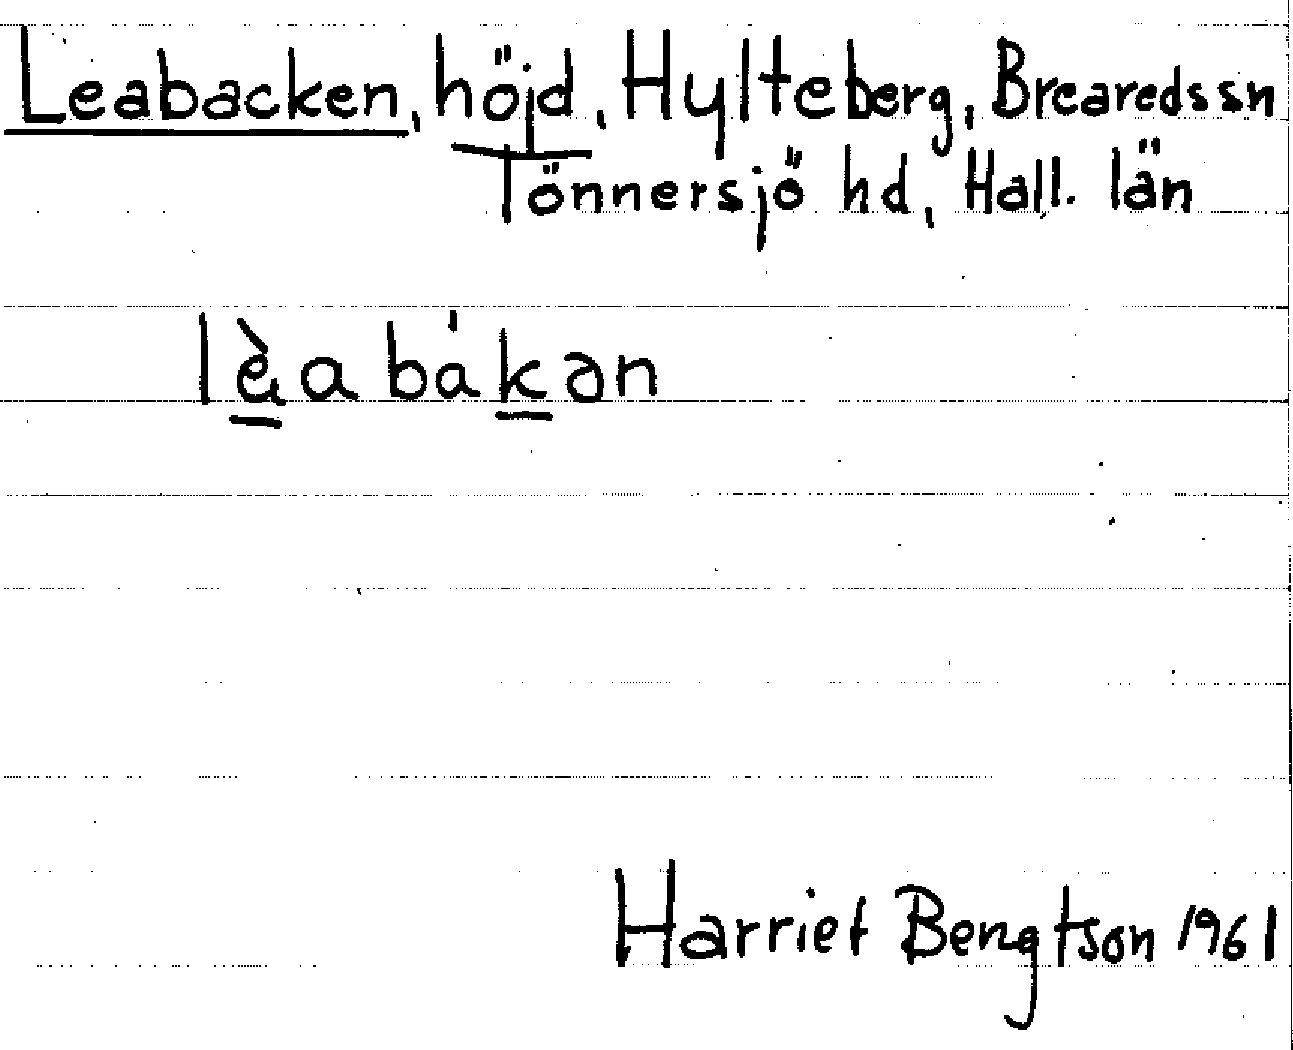 Leabacken, höjd, Hylteberg, Breareds sn
Tönnersjö hd, Hall. län
lèabákən
Harriet Bengtson 1961